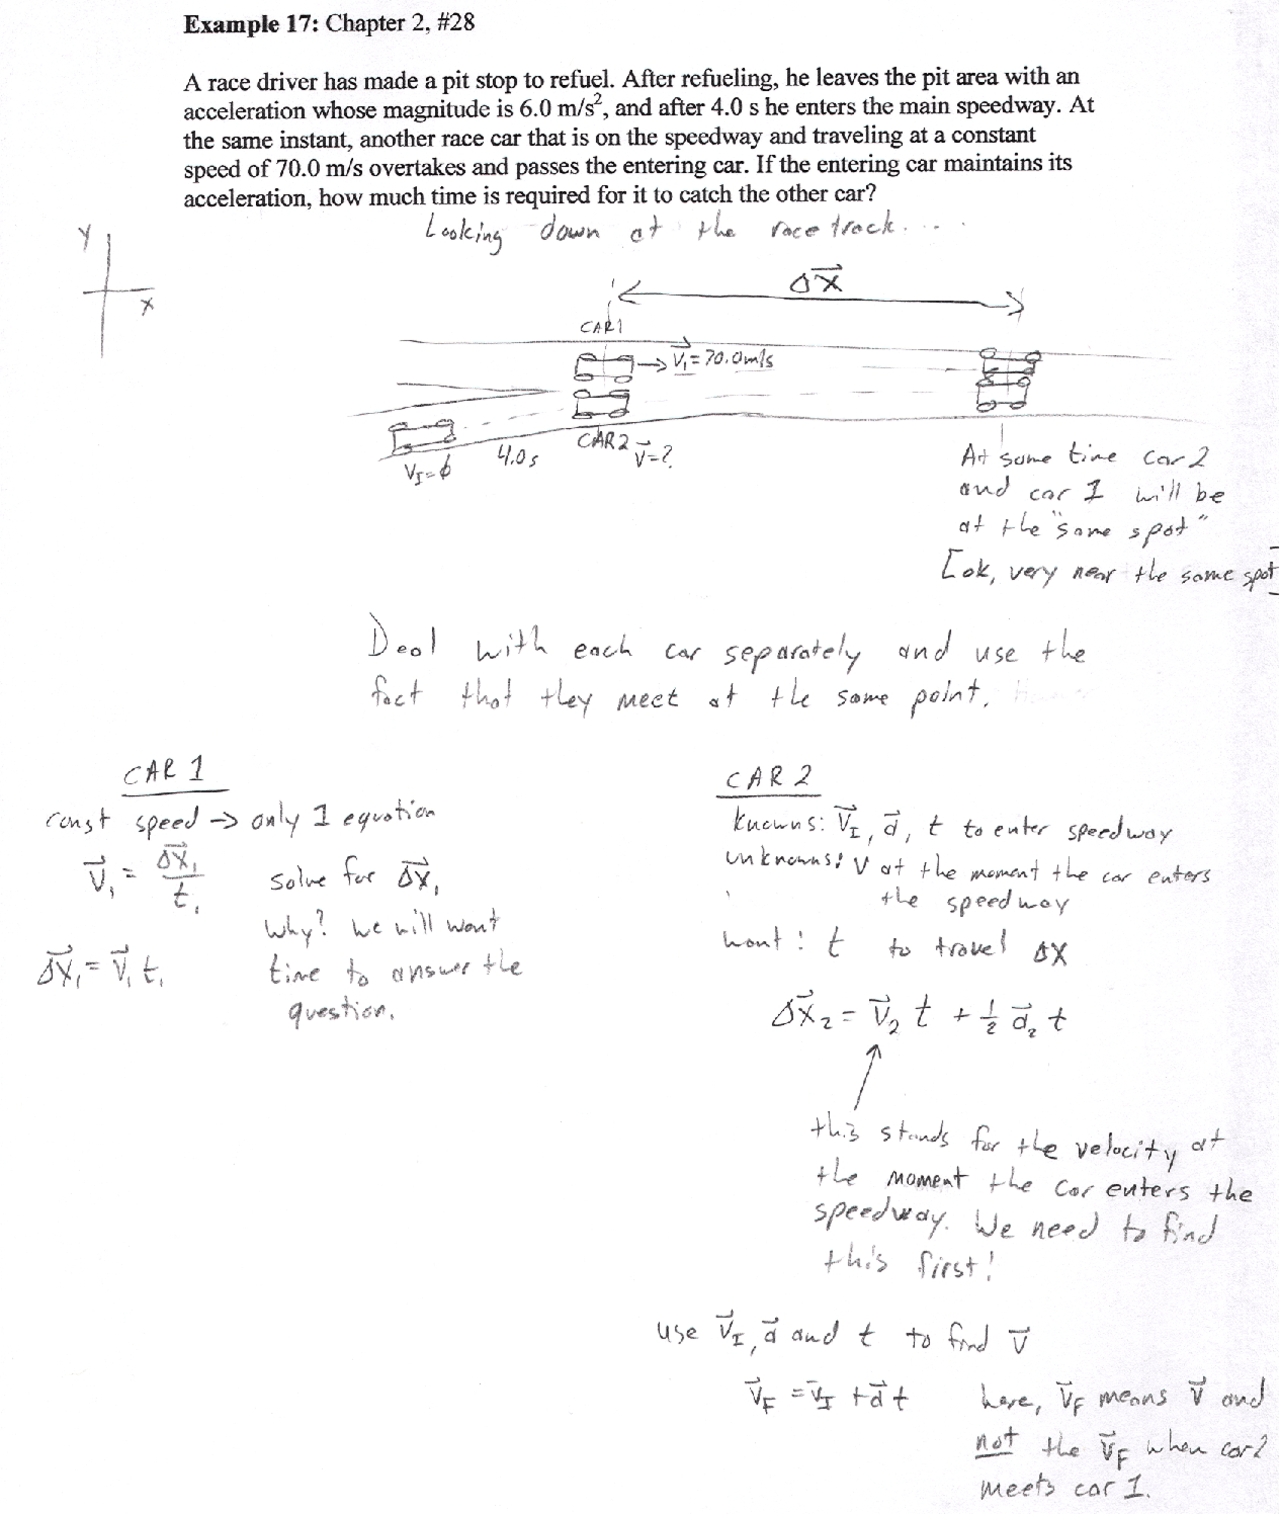 Example 17: Chapter 2, #28
A race driver has made a pit stop to refuel. After refueling, he leaves the pit area with an
acceleration whose magnitude is 6.0 m/s², and after 4.0 s he enters the main speedway. At
the same instant, another race car that is on the speedway and traveling at a constant
speed of 70.0 m/s overtakes and passes the entering car. If the entering car maintains its
acceleration, how much time is required for it to catch the other car?
Looking down at the race track. . . .
Y
X
Δx⃗
CAR 1
v⃗₁ = 70.0 m/s
CAR 2 v⃗ = ?
4.0 s
V_I = ϕ
At some time car 2
and car 1 will be
at the "same spot"
[ok, very near the same spot]
Deal with each car separately and use the
fact that they meet at the same point.
CAR 1
const speed → only 1 equation
v⃗₁ = Δx⃗₁ / t₁
solve for Δx⃗₁
why? we will want
time to answer the
question.
Δx⃗₁ = v⃗₁ t₁
CAR 2
knowns: v⃗_I, a⃗, t to enter speedway
unknowns: v at the moment the car enters
the speedway
want: t to travel Δx
Δx⃗₂ = v⃗₂ t + ½ a⃗₂ t
this stands for the velocity at
the moment the car enters the
speedway. We need to find
this first!
use v⃗_I, a⃗ and t to find v⃗
v⃗_F = v⃗_I + a⃗ t
here, v⃗_F means v⃗ and
not the v⃗_F when car 2
meets car 1.